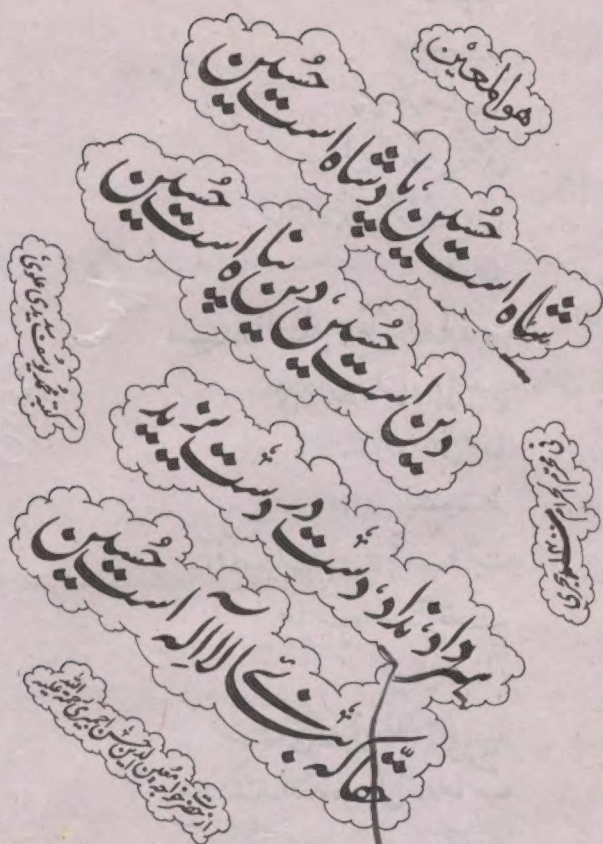 هوالمعین
شاه است حُسین، پادشاه است حُسین
دین است حُسین، دین پناه است حُسین
سر داد، نداد، دست در دست یزید
حقّا که بنائے لا الٰه است حُسین
فی محرم الحرام ۱۴۰۰ ہجری
از حضرت خواجہ معین الدین حسن اجمیری رحمۃ اللہ علیہ